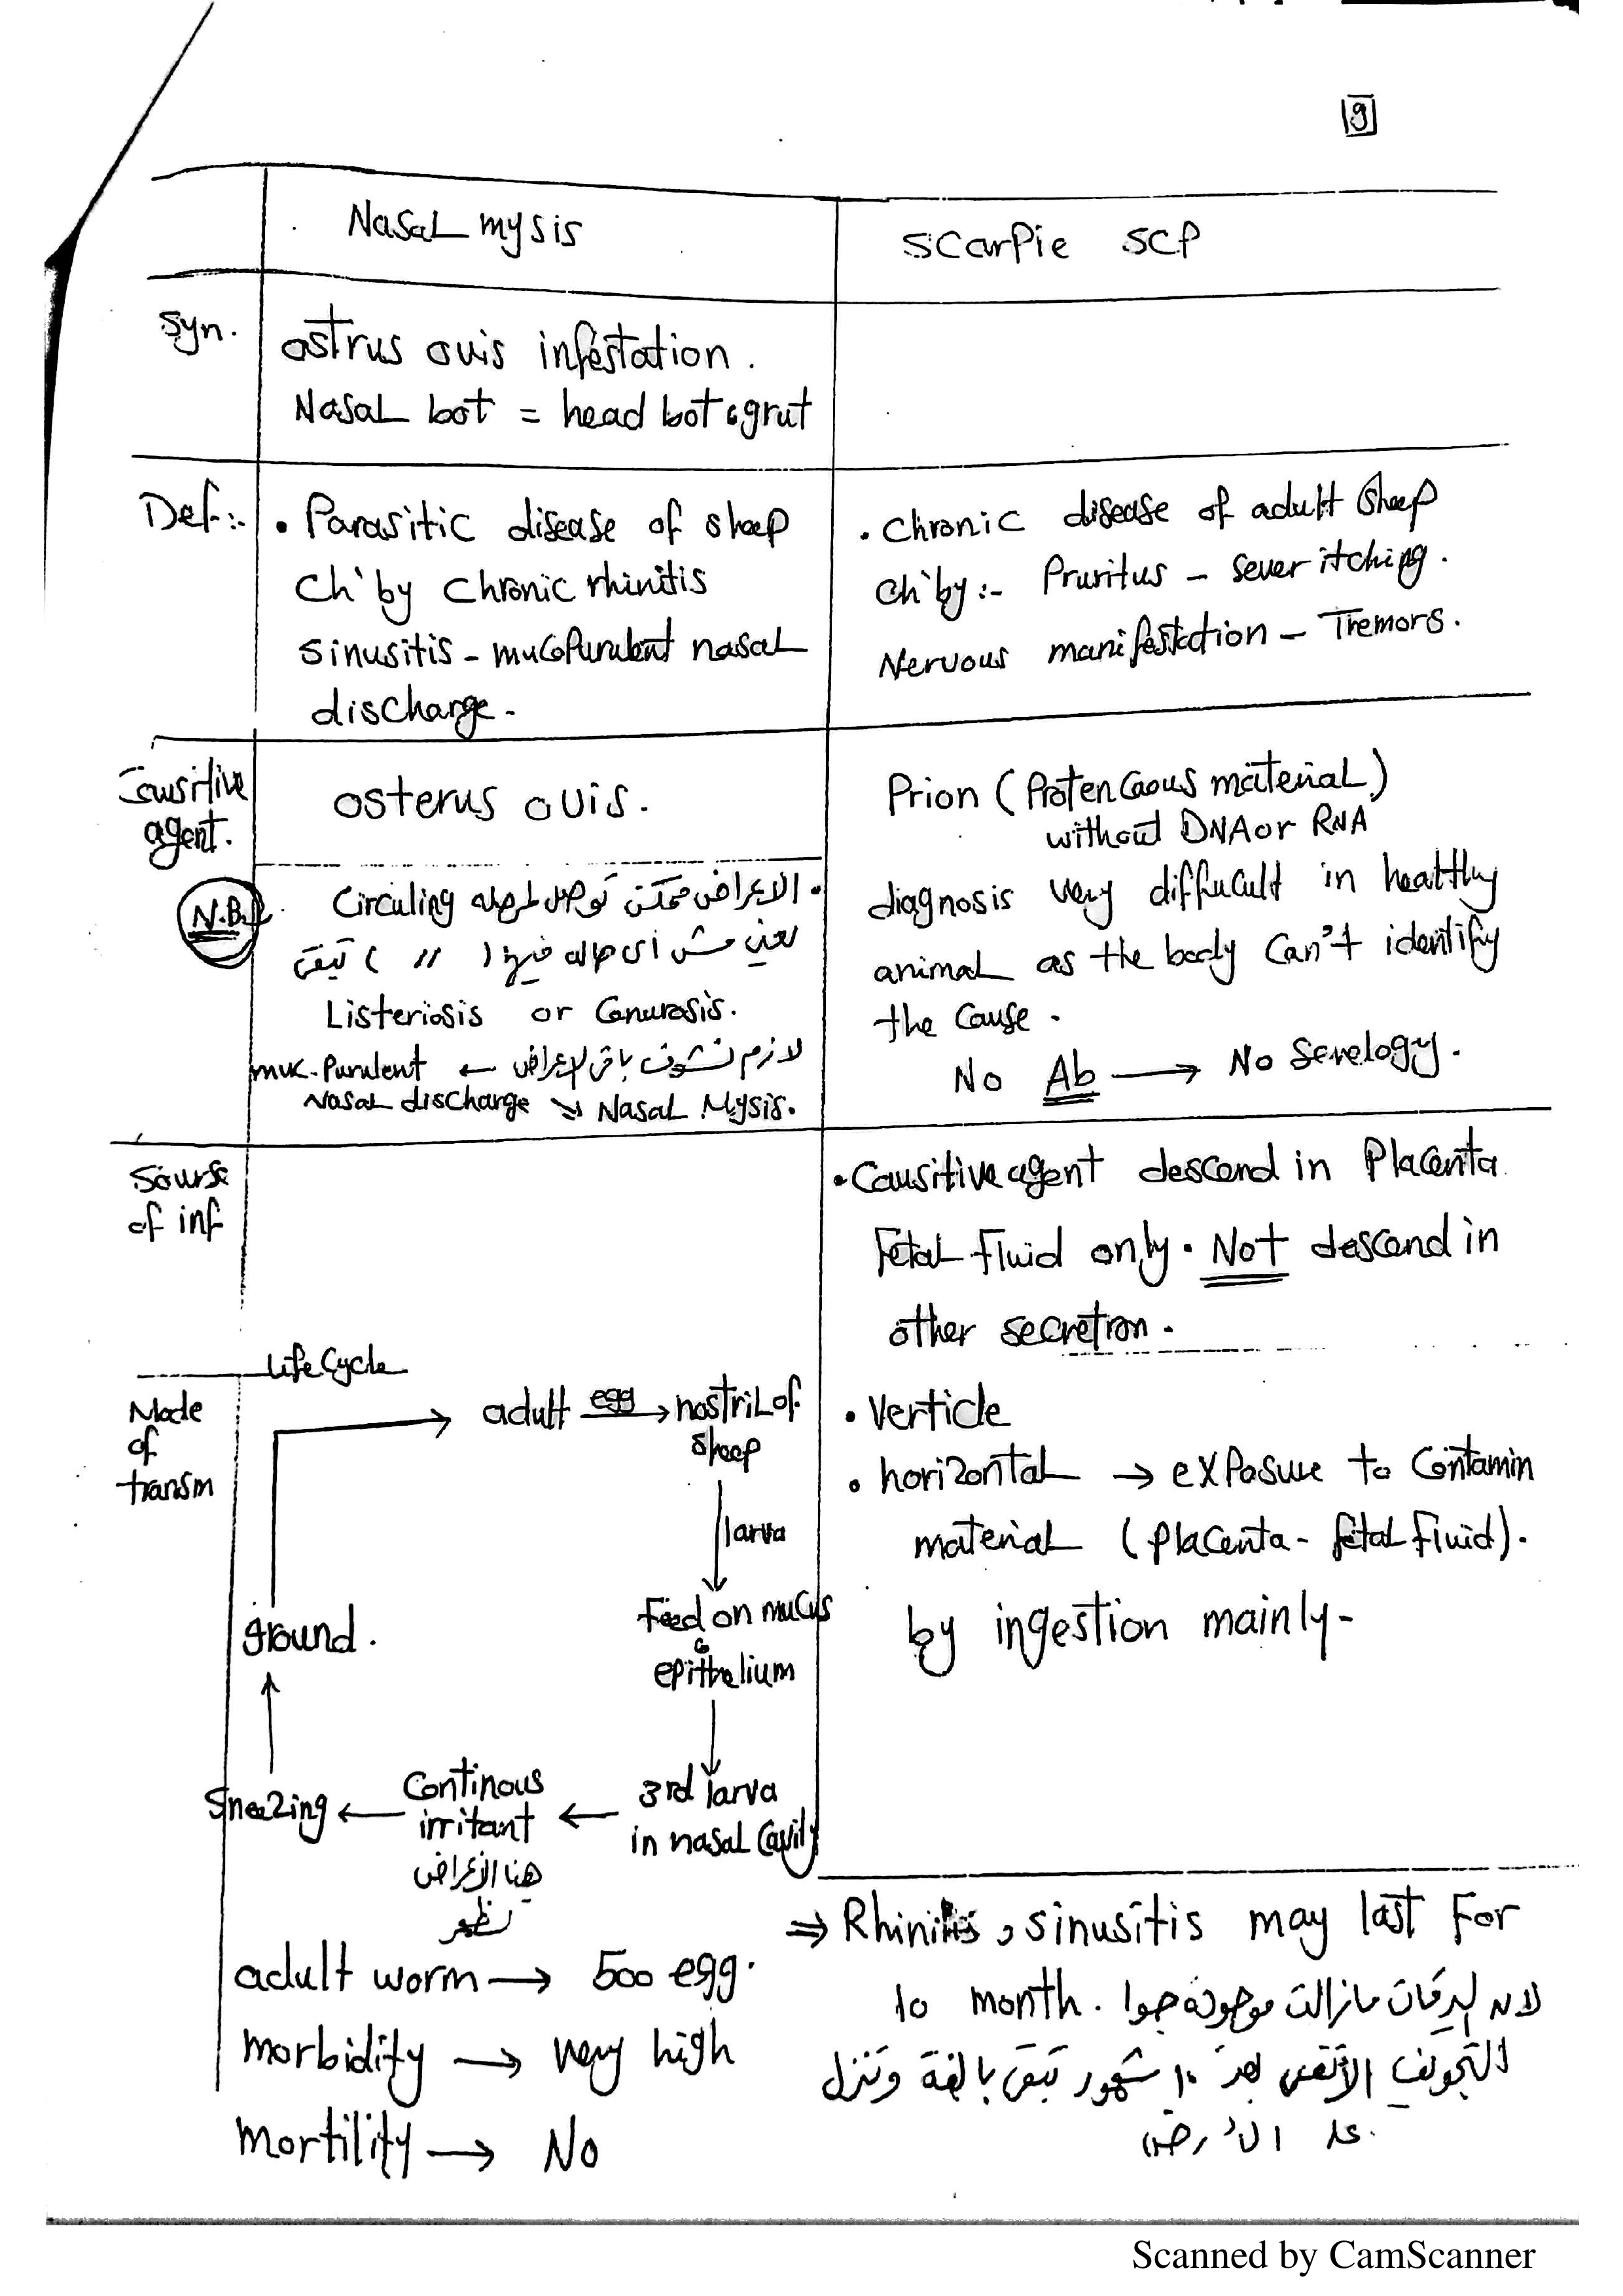 9
Nasal mysis
SCarpie SCP
Syn.
ostrus ovis infestation.
Nasal bot = head bot & grut
Def:-
• Parasitic disease of sheep
Ch' by Chronic rhinitis
sinusitis - mucopurulent nasal
discharge.
• Chronic disease of adult sheep
Ch' by:- Pruritus - sever itching.
Nervous manifestation - Tremors.
Causitive
agent.
osterus ovis.
N.B
• الاعراض ممكن توصل لمرحله Circuling
يعني مش أى حاله فيها ( // ) تبقى
Listeriosis or Cenurosis.
لازم نشوف باقى الاعراض ← muc-Purulent
Nasal discharge ⇒ Nasal Mysis.
Prion (Protencaous material)
without DNA or RNA
diagnosis very difficult in healthy
animal as the body Can't identify
the Cause.
No Ab → No Serelogy.
Sourse
of inf
• Causitive agent descend in Placenta
Fetal Fluid only. Not descend in
other secretion.
Life Cycle
Mode
of
transm
adult egg → nostril of
sheep
larva
Feed on mucus
&
epithelium
3rd larva
in nasal Cavity
Continous
irritant
هنا الأعراض
تظهر
Sneezing
ground.
• Verticle
• horizontal → exPosure to Contamin
material (Placenta - fetal Fluid).
by ingestion mainly-
adult worm → 500 egg.
morbidity → very high
mortility → No
⇒ Rhinitis, sinusitis may last For
10 month. لان اليرقات مازالت موجوده جوا
التجويف الأنفى بعد ١٠ شهور تبقى بالغة وتنزل
على الأرض.
Scanned by CamScanner